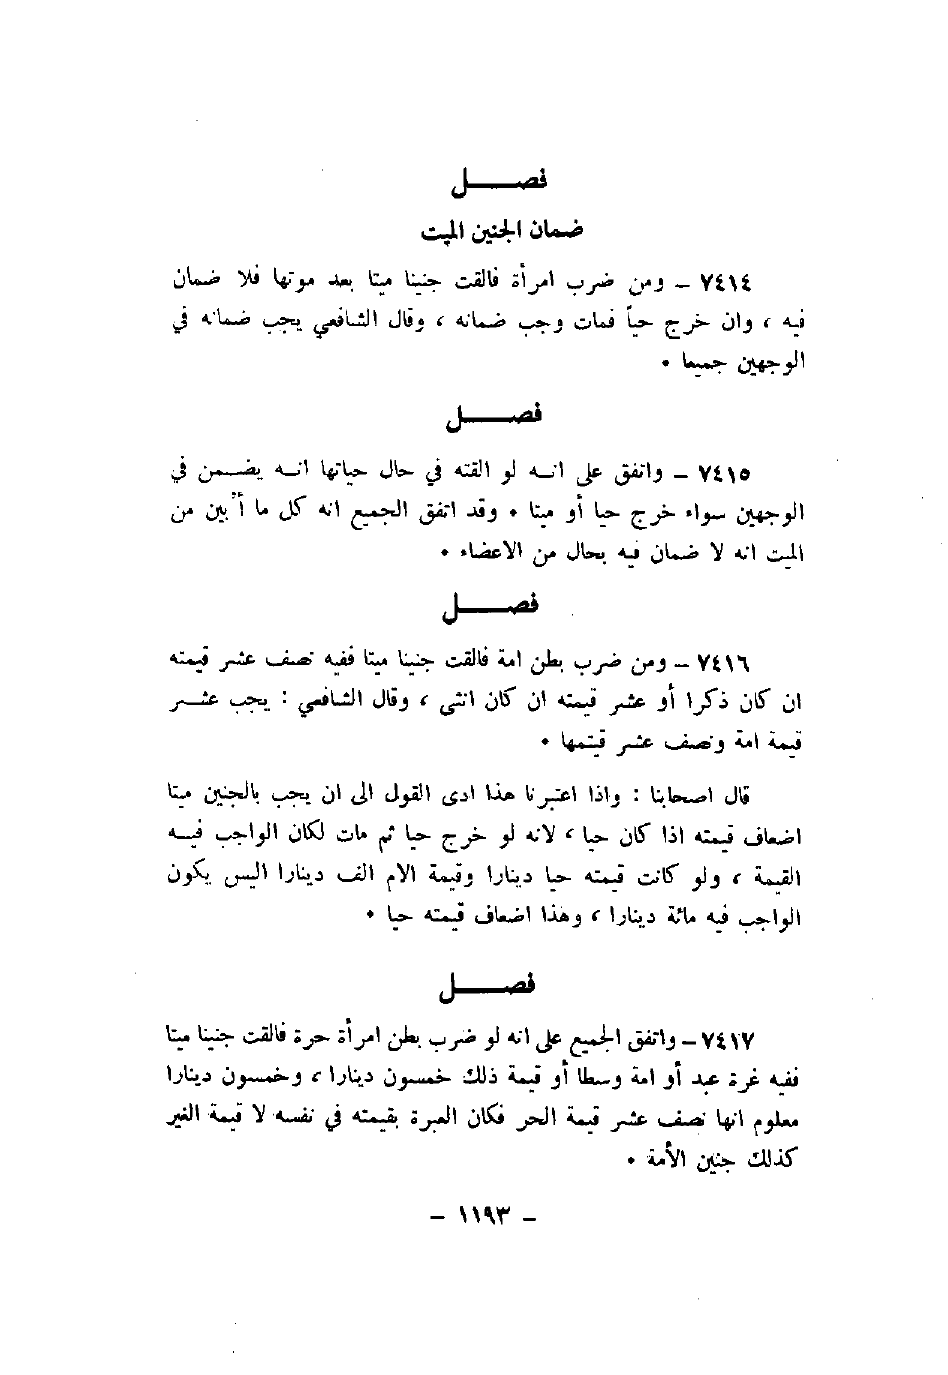 فصـــــل
ضمان الجنين الميت
٧٤١٤ – ومن ضرب امرأة فالقت جنينا ميتا بعد موتها فلا ضمان
فيه ، وان خرج حياً فمات وجب ضمانه ، وقال الشافعي يجب ضمانه في
الوجهين جميعا •
فصـــــل
٧٤١٥ – واتفق على انـه لو القته في حال حياتها انـه يضـمن في
الوجهين سواء خرج حيا أو ميتا • وقد اتفق الجميع انه كل ما أبين من
الميت انه لا ضمان فيه بحال من الاعضاء •
فصـــــل
٧٤١٦ – ومن ضرب بطن امة فالقت جنينا ميتا ففيه نصف عشر قيمته
ان كان ذكرا أو عشر قيمته ان كان انثى ، وقال الشافعي : يجب عشـر
قيمة امة ونصف عشر قيتمها •
قال اصحابنا : واذا اعتبرنا هذا ادى القول الى ان يجب بالجنين ميتا
اضعاف قيمته اذا كان حيا ، لانه لو خرج حيا ثم مات لكان الواجب فيـه
القيمة ، ولو كانت قيمته حيا دينارا وقيمة الام الف دينارا اليس يكون
الواجب فيه مائة دينارا ، وهذا اضعاف قيمته حيا •
فصـــــل
٧٤١٧ – واتفق الجميع على انه لو ضرب بطن امرأة حرة فالقت جنينا ميتا
ففيه غرة عبد أو امة وسطا أو قيمة ذلك خمسون دينارا ، وخمسون دينارا
معلوم انها نصف عشر قيمة الحر فكان العبرة بقيمته في نفسه لا قيمة الغير
كذلك جنين الأمة •
– ١١٩٣ –